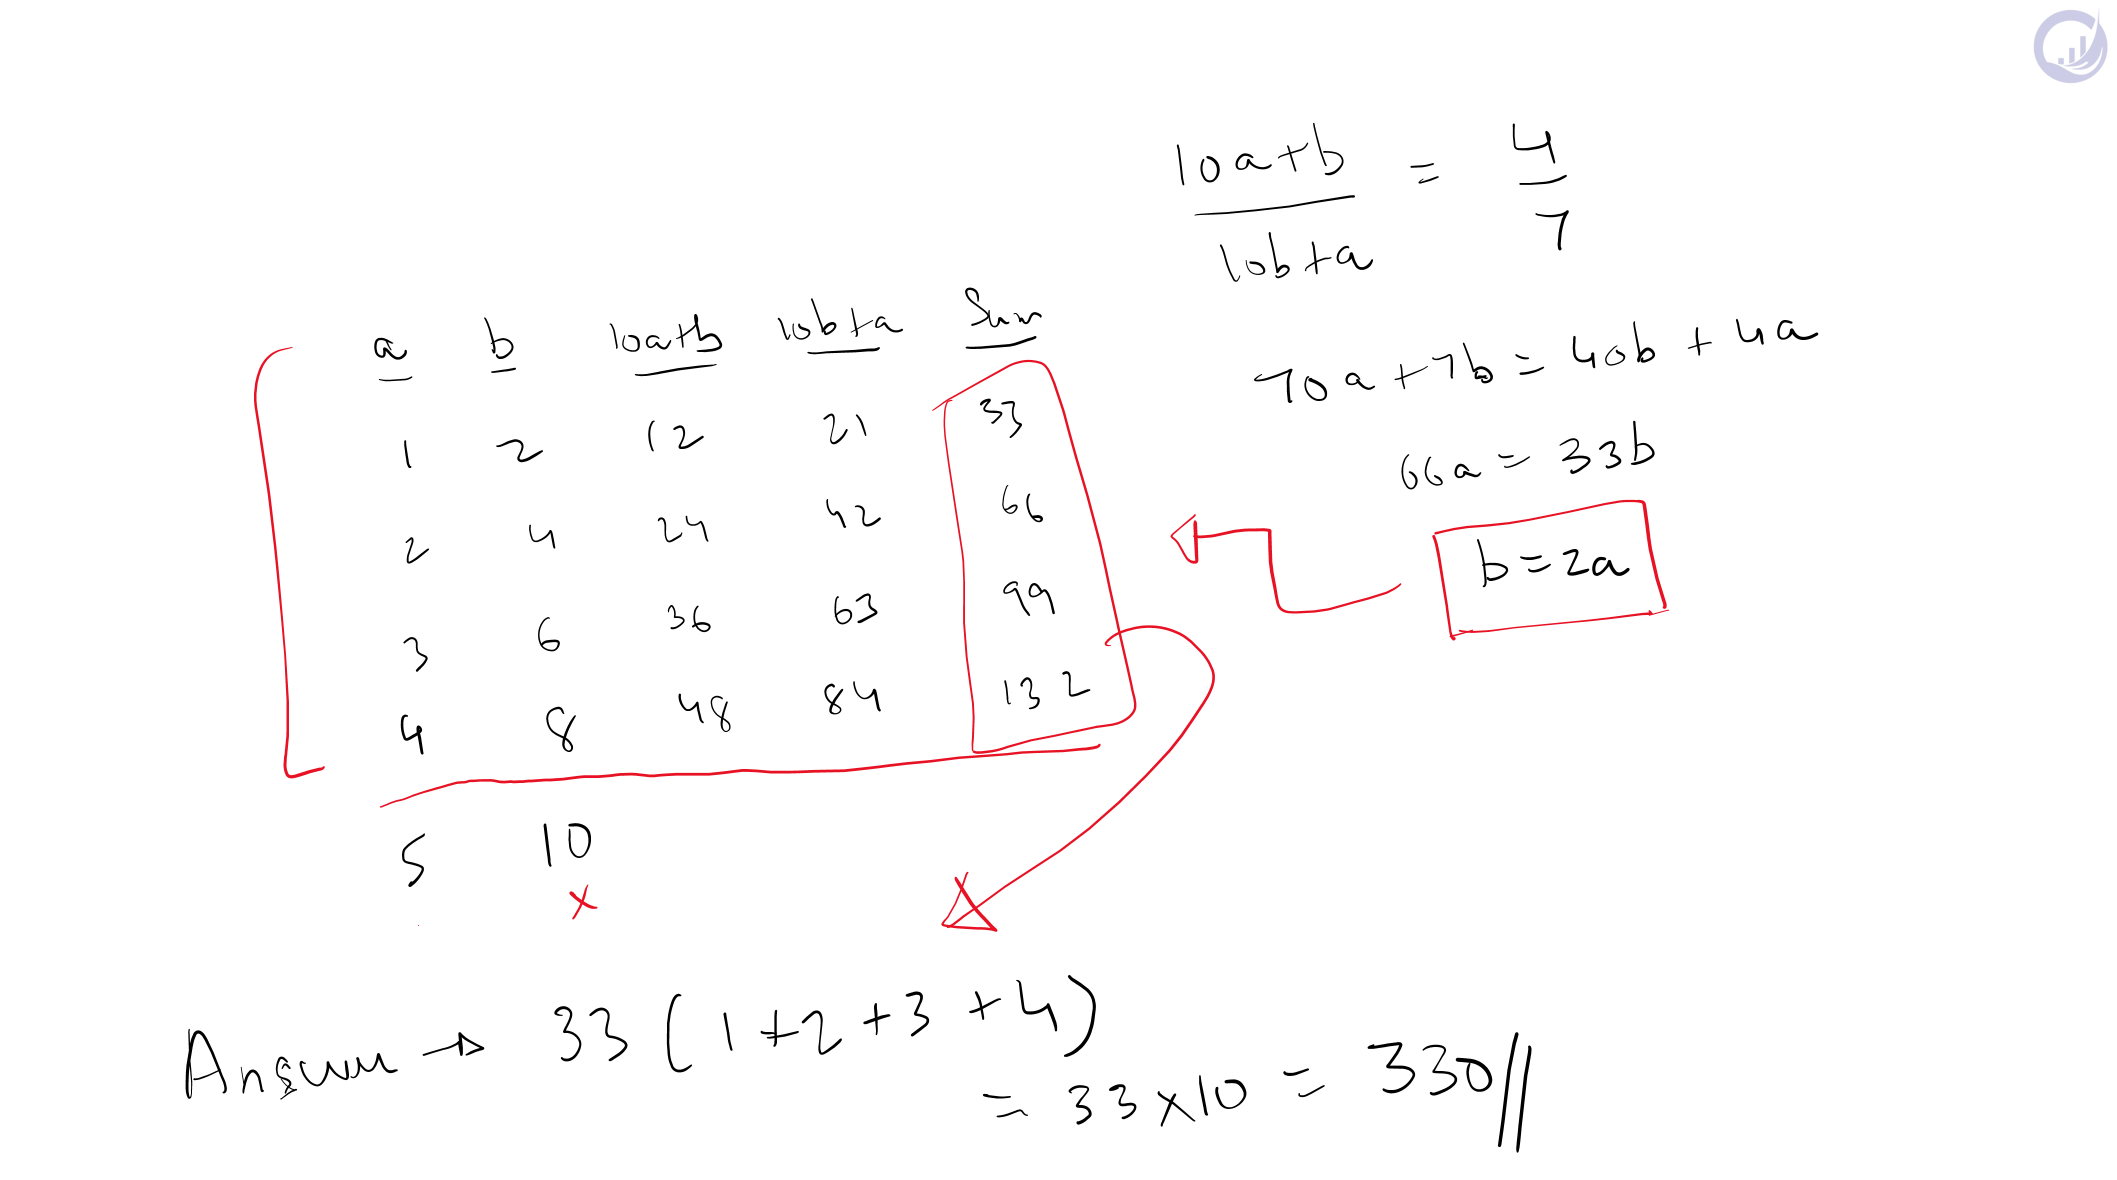 10a+b / 10b+a = 4/7
70a + 7b = 40b + 4a
66a = 33b
b = 2a
a b 10a+b 10b+a Sum
1 2 12 21 33
2 4 24 42 66
3 6 36 63 99
4 8 48 84 132
5 10
x
Answer → 33 (1+2+3+4)
= 33 x 10 = 330 //